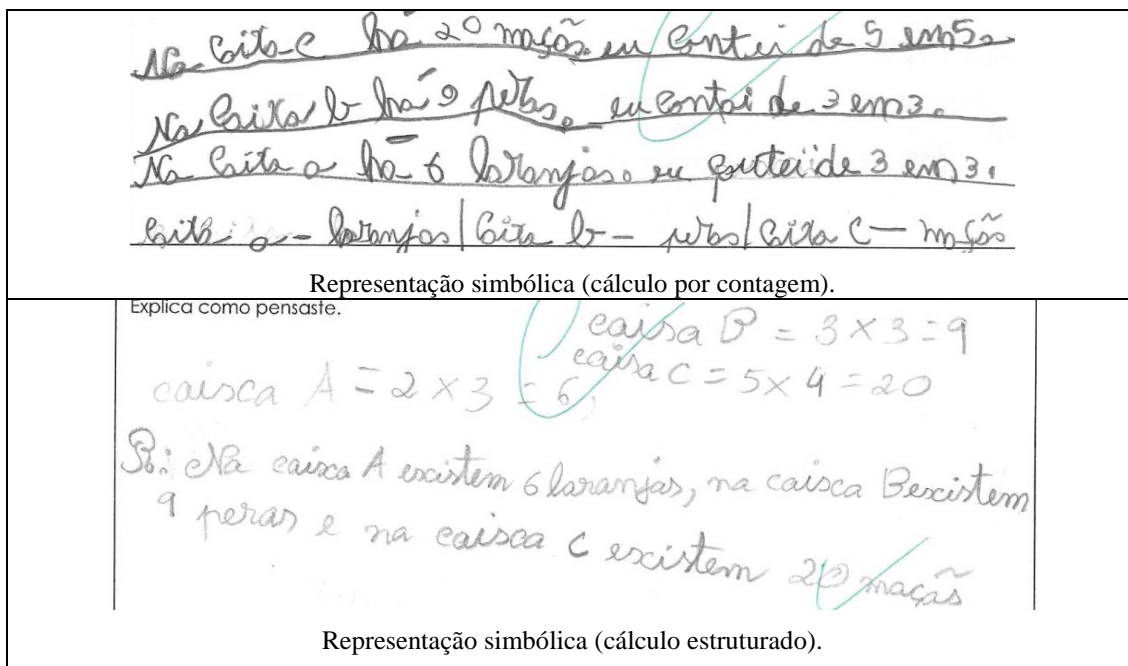 Na caita C há 20 maçãs. eu contei de 5 em 5.
Na caixa b há 9 peras. eu contei de 3 em 3.
Na caita a há 6 laranjas. eu contei de 3 em 3.
caita a - laranjas | caixa b - peras | caixa C - maçãs
Representação simbólica (cálculo por contagem).
Explica como pensaste.
caixa B = 3 × 3 = 9
caixa A = 2 × 3 = 6,
caixa C = 5 × 4 = 20
R: Na caixa A existem 6 laranjas, na caixa B existem
9 peras e na caixa C existem 20 maçãs
Representação simbólica (cálculo estruturado).